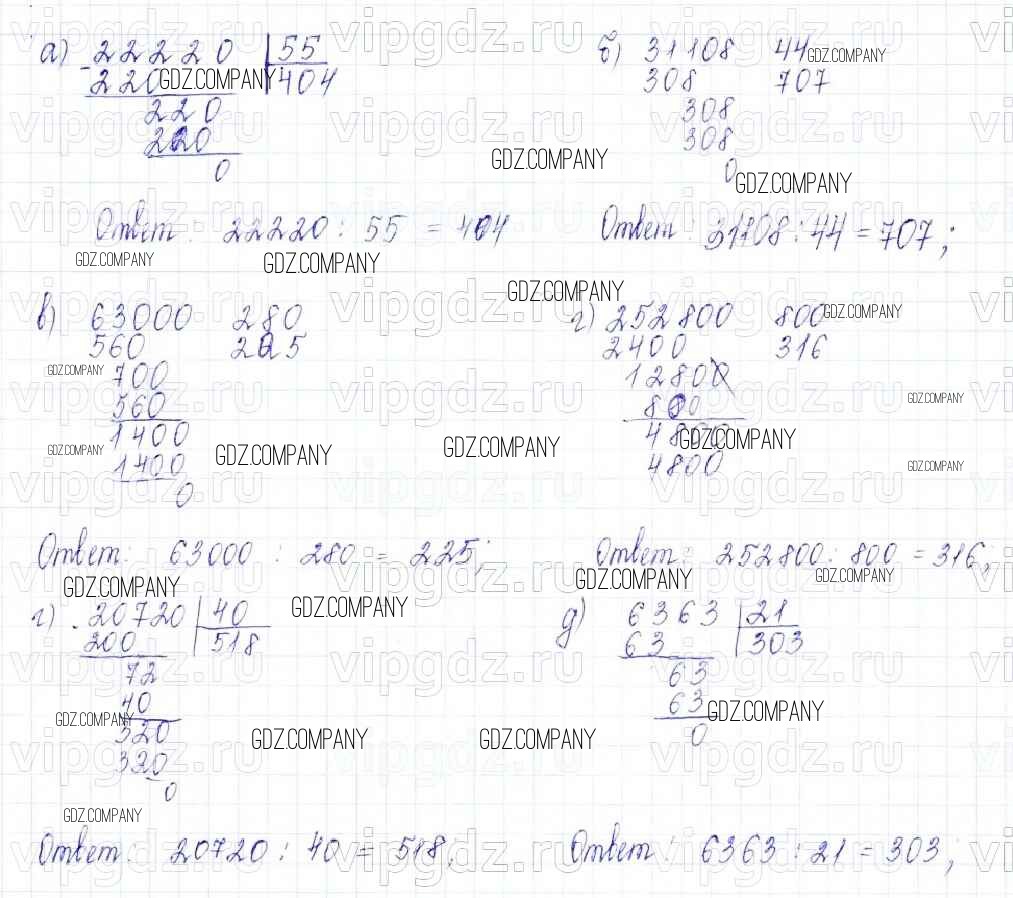 а) 22220 55
220 404
220
220
0
Ответ: 22220 : 55 = 404
б) 31108 44
308 707
308
308
0
Ответ: 31108 : 44 = 707;
в) 63000 280
560 225
700
560
1400
1400
0
Ответ: 63000 : 280 = 225;
г) 252800 800
2400 316
12800
800
4800
4800
Ответ: 252800 : 800 = 316;
г) 20720 40
200 518
72
40
320
320
0
Ответ: 20720 : 40 = 518;
д) 6363 21
63 303
63
63
0
Ответ: 6363 : 21 = 303;
GDZ.COMPANY
vipgdz.ru